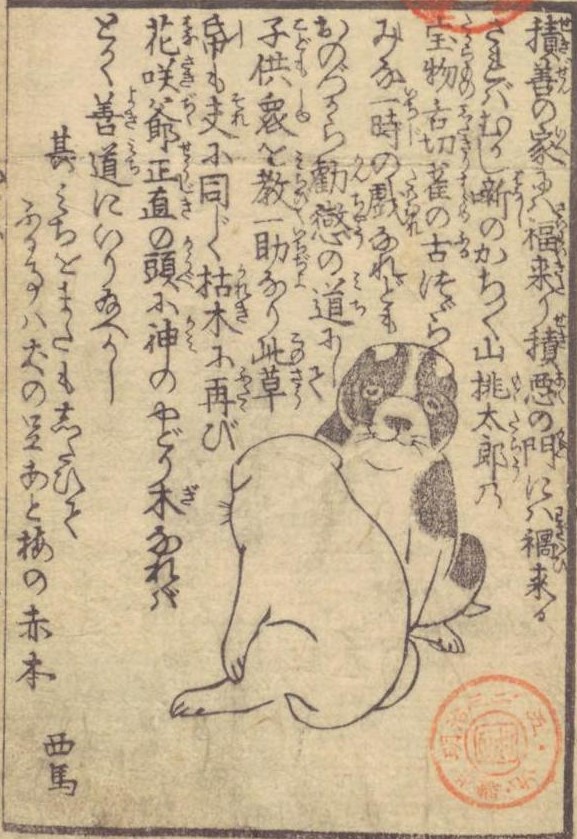 積善の家には福来り積悪の門にハ禍来る
さればむかし噺のかち〱山桃太郎の
宝物舌切雀の古つゞら
みな一時の戯なれども
おのづから勧懲の道にして
子供衆を教一助なり此草
帋も夫に同じく枯木に再び
花咲爺正直の頭に神のやどり木なれバ
とく善道にいり給へかし
其みちをまたも志たひて
ハ犬の足あと梅の赤本
西馬